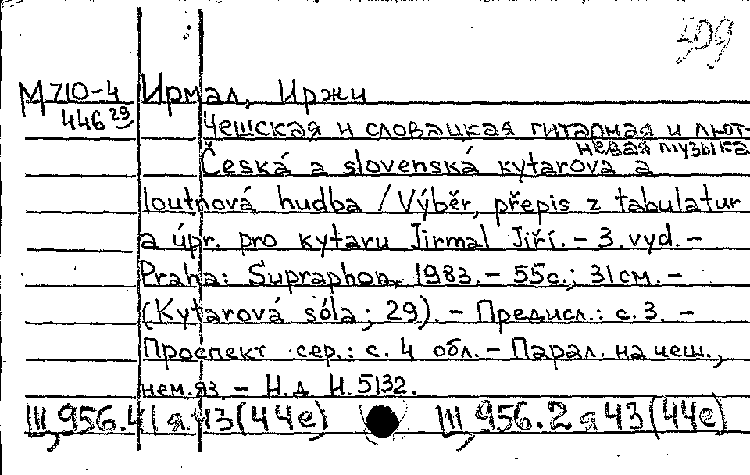 509
М 710-4 Ирмал, Иржи
446 29
Чешская и словацкая гитарная и лют-
невая музыка
Česká a slovenská kytarová a
loutnová hudba / Výběr, přepis z tabulatur
a úpr. pro kytaru Jirmal Jiří. – 3. vyd. –
Praha: Supraphon, 1983. – 55с.; 31см. –
(Kytarová sóla; 29). – Предисл.: с. 3. –
Проспект сер.: с. 4 обл. – Парал. на чеш.,
нем.яз – Н.д. Н.5132.
Щ956.41я43(44е) Щ956.2я43(44е)